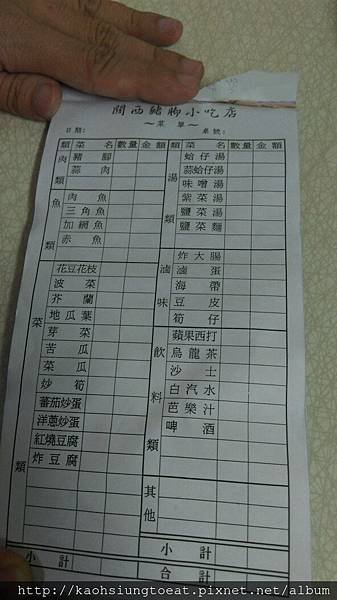 關西豬腳小吃店
～菜單～
日期： 桌號：
類 菜名 數量 金額 類 菜名 數量 金額
肉類
豬腳
蒜肉
魚類
肉魚
三角魚
加網魚
赤魚
菜類
花豆花枝
菠菜
芥蘭
地瓜葉
芽菜
苦瓜
菜瓜
炒筍
蕃茄炒蛋
洋蔥炒蛋
紅燒豆腐
炸豆腐
小計
湯類
蛤仔湯
蒜蛤仔湯
味噌湯
紫菜湯
鹽菜湯
鹽菜麵
滷味
炸大腸
滷蛋
海帶
豆皮
筍仔
飲料類
蘋果西打
烏龍茶
沙士
白汽水
芭樂汁
啤酒
其他
小計
合計
http://kaohsiungtoeat.pixnet.net/album